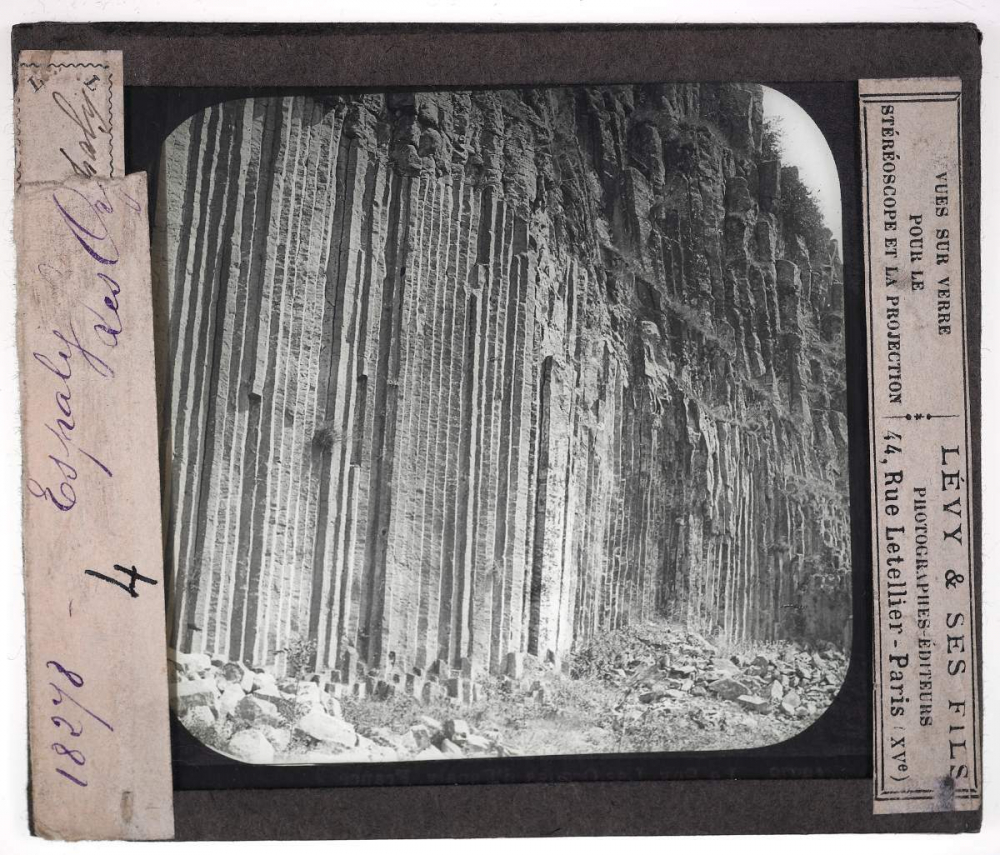 18278 - Espaly
4
les Orgues
VUES SUR VERRE
POUR LE
STÉRÉOSCOPE ET LA PROJECTION
LÉVY & SES FILS
PHOTOGRAPHES-ÉDITEURS
44, Rue Letellier - Paris (XVe)